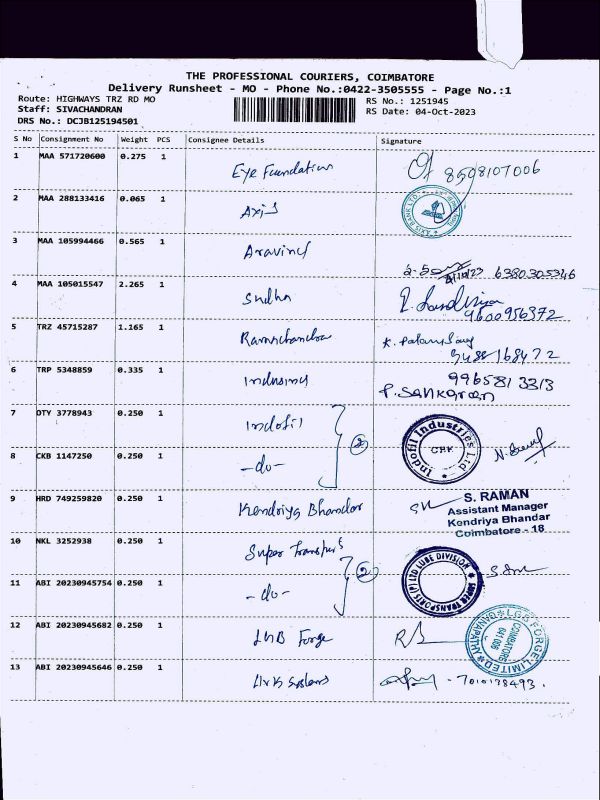 THE PROFESSIONAL COURIERS, COIMBATORE
Delivery Runsheet - MO - Phone No.:0422-3505555 - Page No.:1
Route: HIGHWAYS TRZ RD MO RS No.: 1251945
Staff: SIVACHANDRAN RS Date: 04-Oct-2023
DRS No.: DCJB125194501
S No Consignment No Weight PCS Consignee Details Signature
1 MAA 571720600 0.275 1 Eye Foundation 8598107006
2 MAA 288133416 0.065 1 Axis AXIS BANK LTD
3 MAA 105994466 0.565 1 Aravind 6380305346
4 MAA 105015547 2.265 1 Sudha 9600956372
5 TRZ 45715287 1.165 1 Ramachandra
6 TRP 5348859 0.335 1 Indusind 9965813313
P. Sankaran
7 OTY 3778943 0.250 1 Indofil Indofil Industries Ltd.
8 CKB 1147250 0.250 1 -do- 2
9 HRD 749259820 0.250 1 Kendriya Bhandar S. RAMAN
Assistant Manager
Kendriya Bhandar
Coimbatore - 18
10 NKL 3252938 0.250 1 Super Transports
11 ABI 20230945754 0.250 1 -do- 2 SUPER TRANSPORTS (P) LTD LUBE DIVISION
12 ABI 20230945682 0.250 1 LGB Forge LGB FORGE LIMITED GANAPATHY COIMBATORE 641 006
13 ABI 20230945646 0.250 1 Systems 7010178493